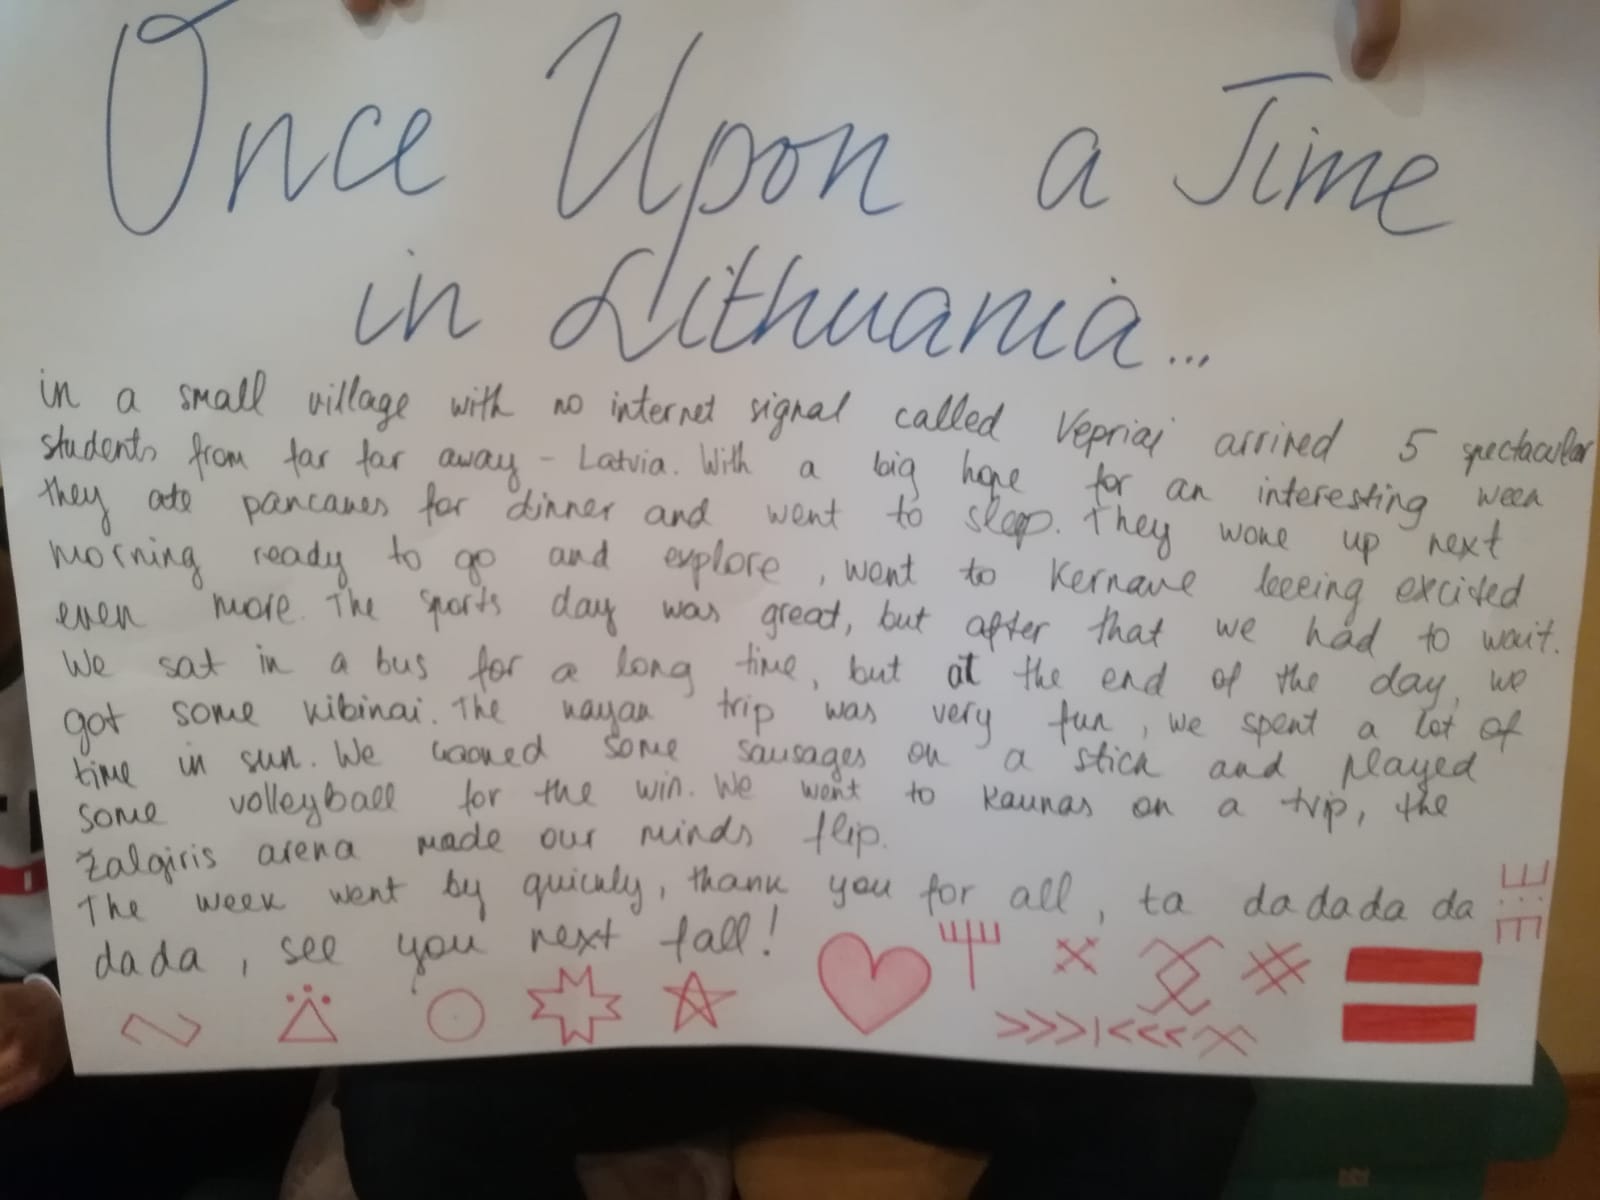 Once Upon a Time
in Lithuania...
in a small village with no internet signal called Vepriai arrived 5 spectacular
students from far far away - Latvia. With a big hope for an interesting week
they ate pancakes for dinner and went to sleep. They woke up next
morning ready to go and explore, went to Kernave beeing excited
even more. The sports day was great, but after that we had to wait.
We sat in a bus for a long time, but at the end of the day, we
got some kibinai. The kayak trip was very fun, we spent a lot of
time in sun. We cooked some sausages on a stick and played
some volleyball for the win. We went to Kaunas on a trip, the
Žalgiris arena made our minds flip.
The week went by quickly, thank you for all, ta da dada da
dada, see you next fall!